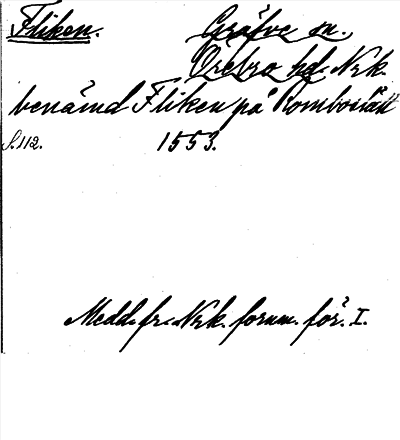 Fliken. Gräfve sn.
Örebro hd. Nrk.
benämd Fliken på Rombosätt
S. 112. 1553.
Medd. fr. Nrk. fornm. för. I.